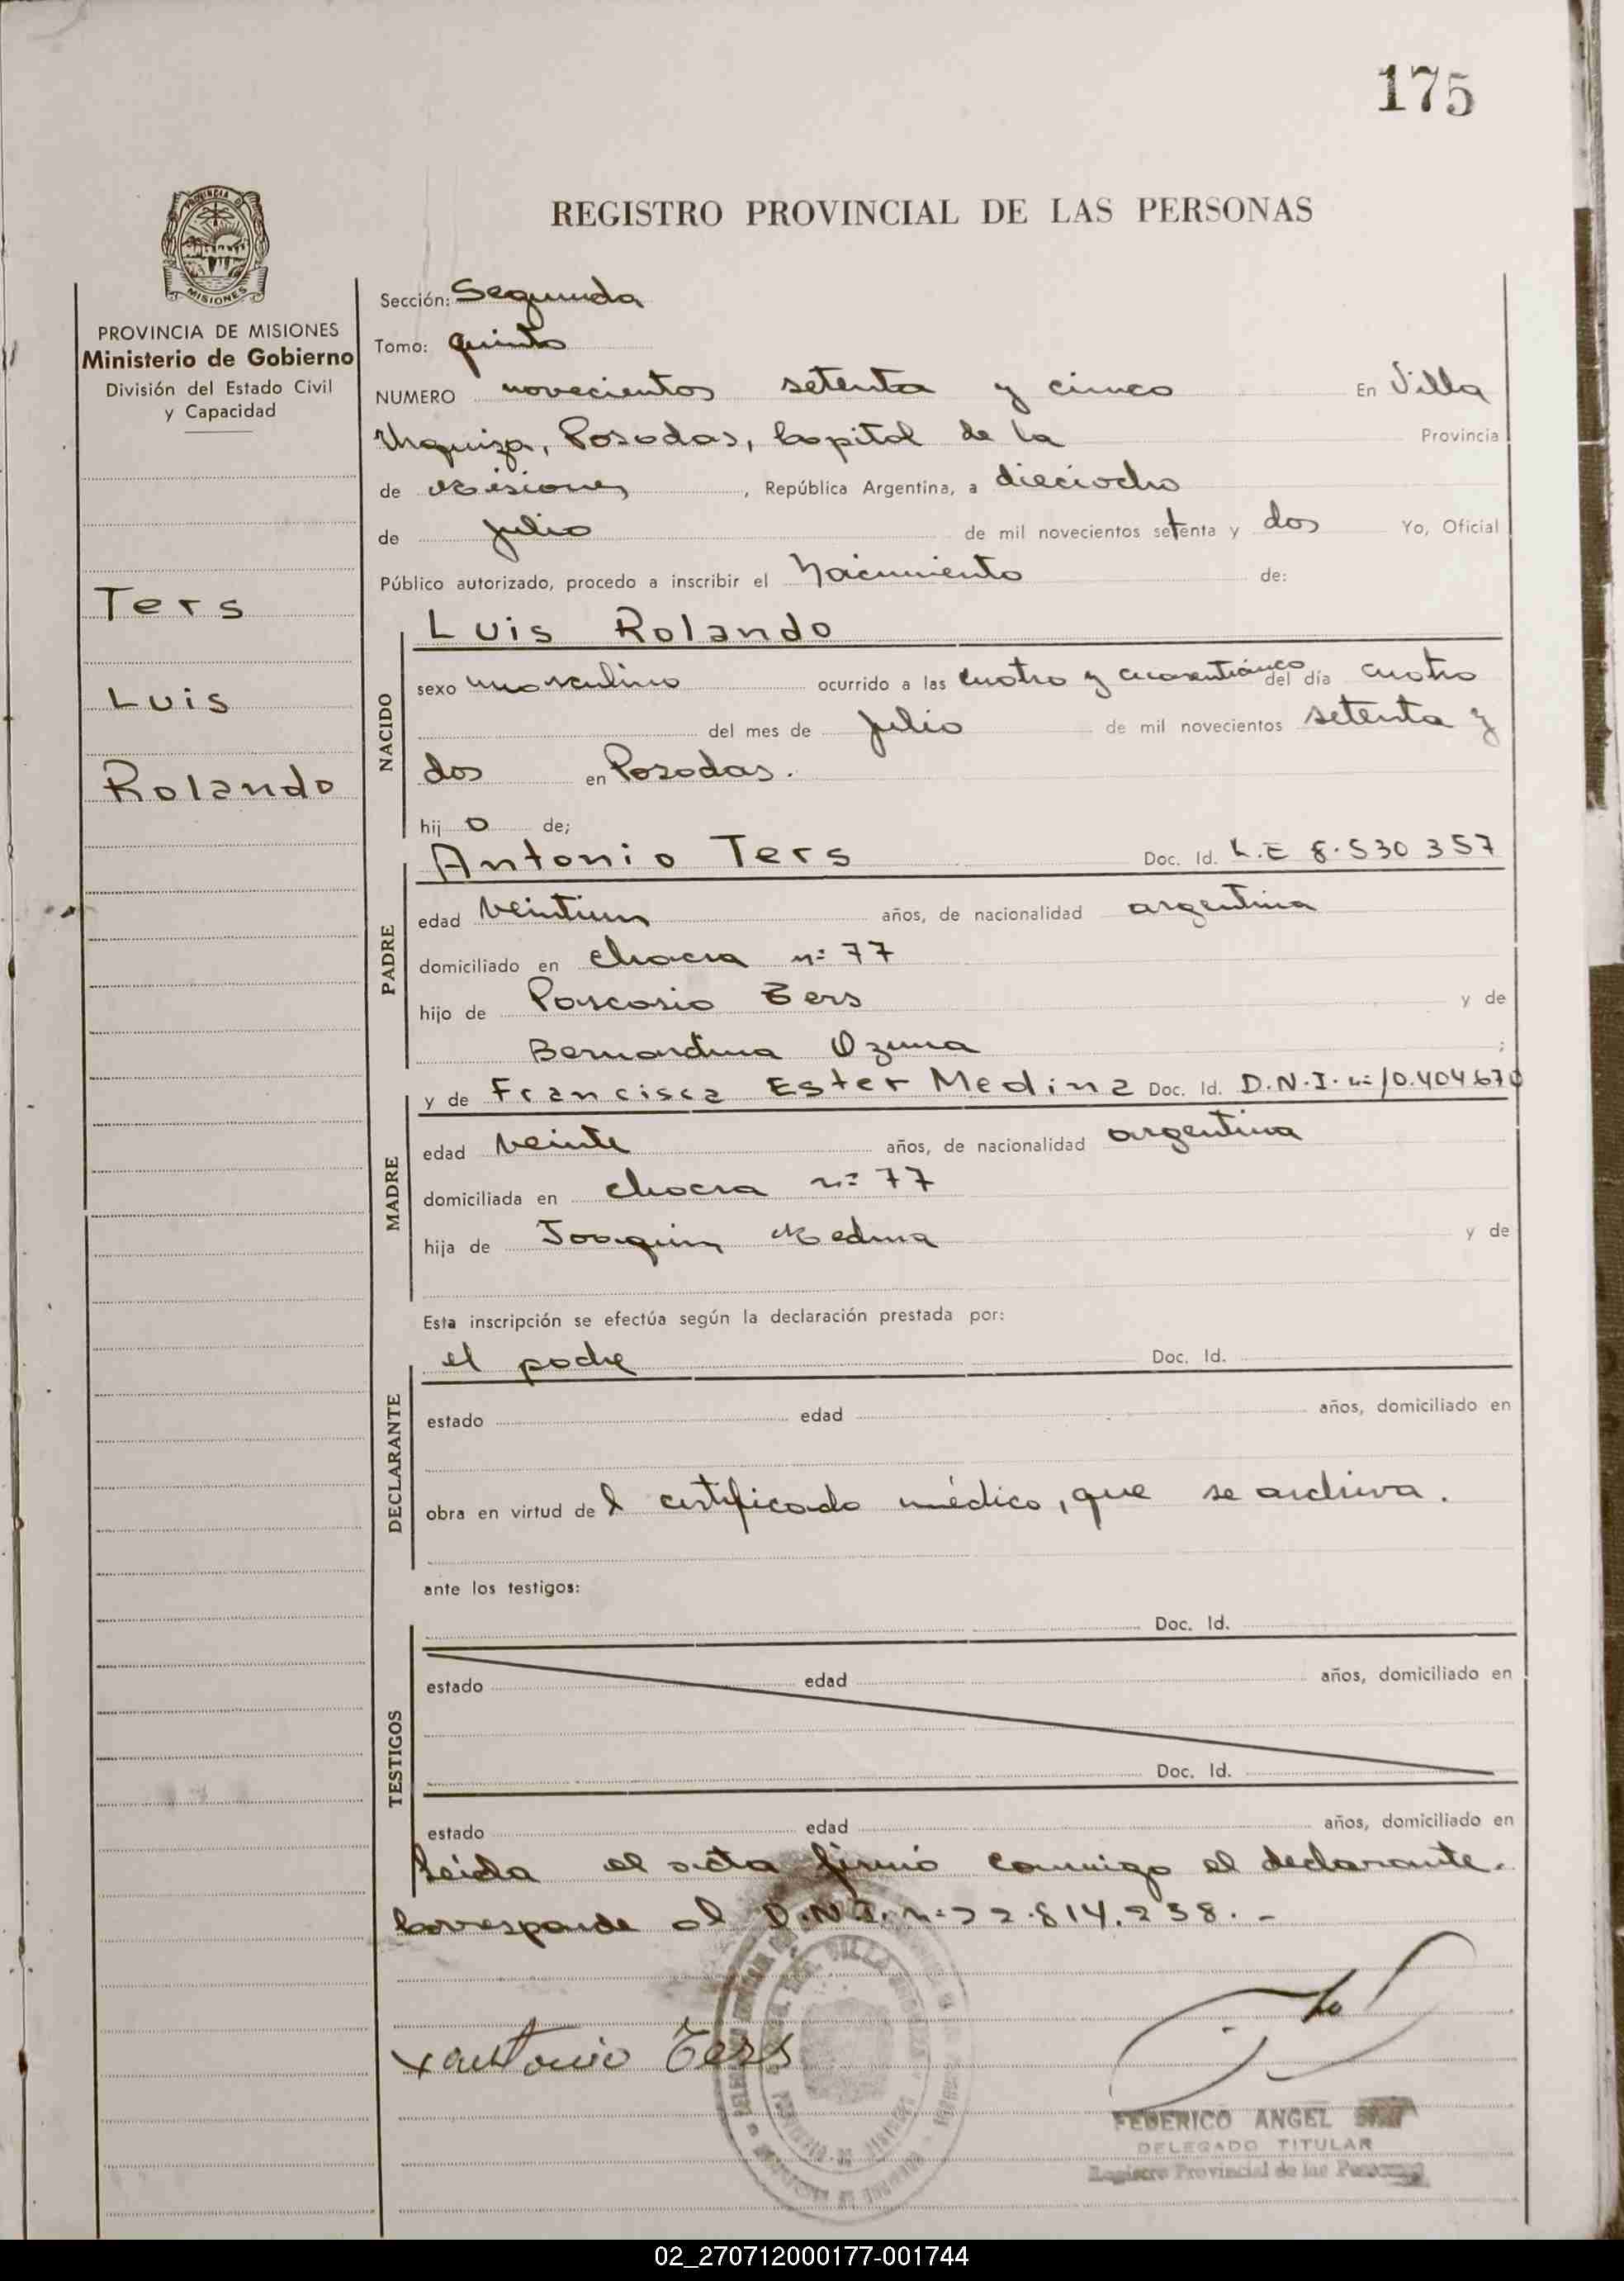 175
PROVINCIA DE
MISIONES
REGISTRO PROVINCIAL DE LAS PERSONAS
PROVINCIA DE MISIONES
Ministerio de Gobierno
División del Estado Civil
y Capacidad
Ters
Luis
Rolando
Sección: Segunda
Tomo: quinto
NUMERO novecientos setenta y cinco En Villa
Urquiza, Posadas, Capital de la Provincia
de Misiones, República Argentina, a dieciocho
de julio de mil novecientos setenta y dos Yo, Oficial
Público autorizado, procedo a inscribir el Nacimiento de:
NACIDO
Luis Rolando
sexo masculino ocurrido a las cuatro y cuarenticinco del día cuatro
del mes de julio de mil novecientos setenta y
dos en Posadas.
hij o de;
PADRE
Antonio Ters Doc. Id. L.E 8.530 357
edad veintiun años, de nacionalidad argentina
domiciliado en chacra nº 77
hijo de Pascasio Ters y de
Bernardina Ozuna ;
MADRE
y de Francisca Ester Medina Doc. Id. D.N.I. nº 10.404670
edad veinte años, de nacionalidad argentina
domiciliada en chacra nº 77
hija de Joaquin Medina y de
Esta inscripción se efectúa según la declaración prestada por:
DECLARANTE
el padre Doc. Id.
estado edad años, domiciliado en
obra en virtud de l certificado médico, que se archiva.
ante los testigos:
TESTIGOS
Doc. Id.
estado edad años, domiciliado en
Doc. Id.
estado edad años, domiciliado en
Leida el acta firmó conmigo el declarante.
Corresponde al D.N.I. nº 22.814.238.-
Antonio Ters
FEDERICO ANGEL
DELEGADO TITULAR
Registro Provincial de las Personas
02_270712000177-001744